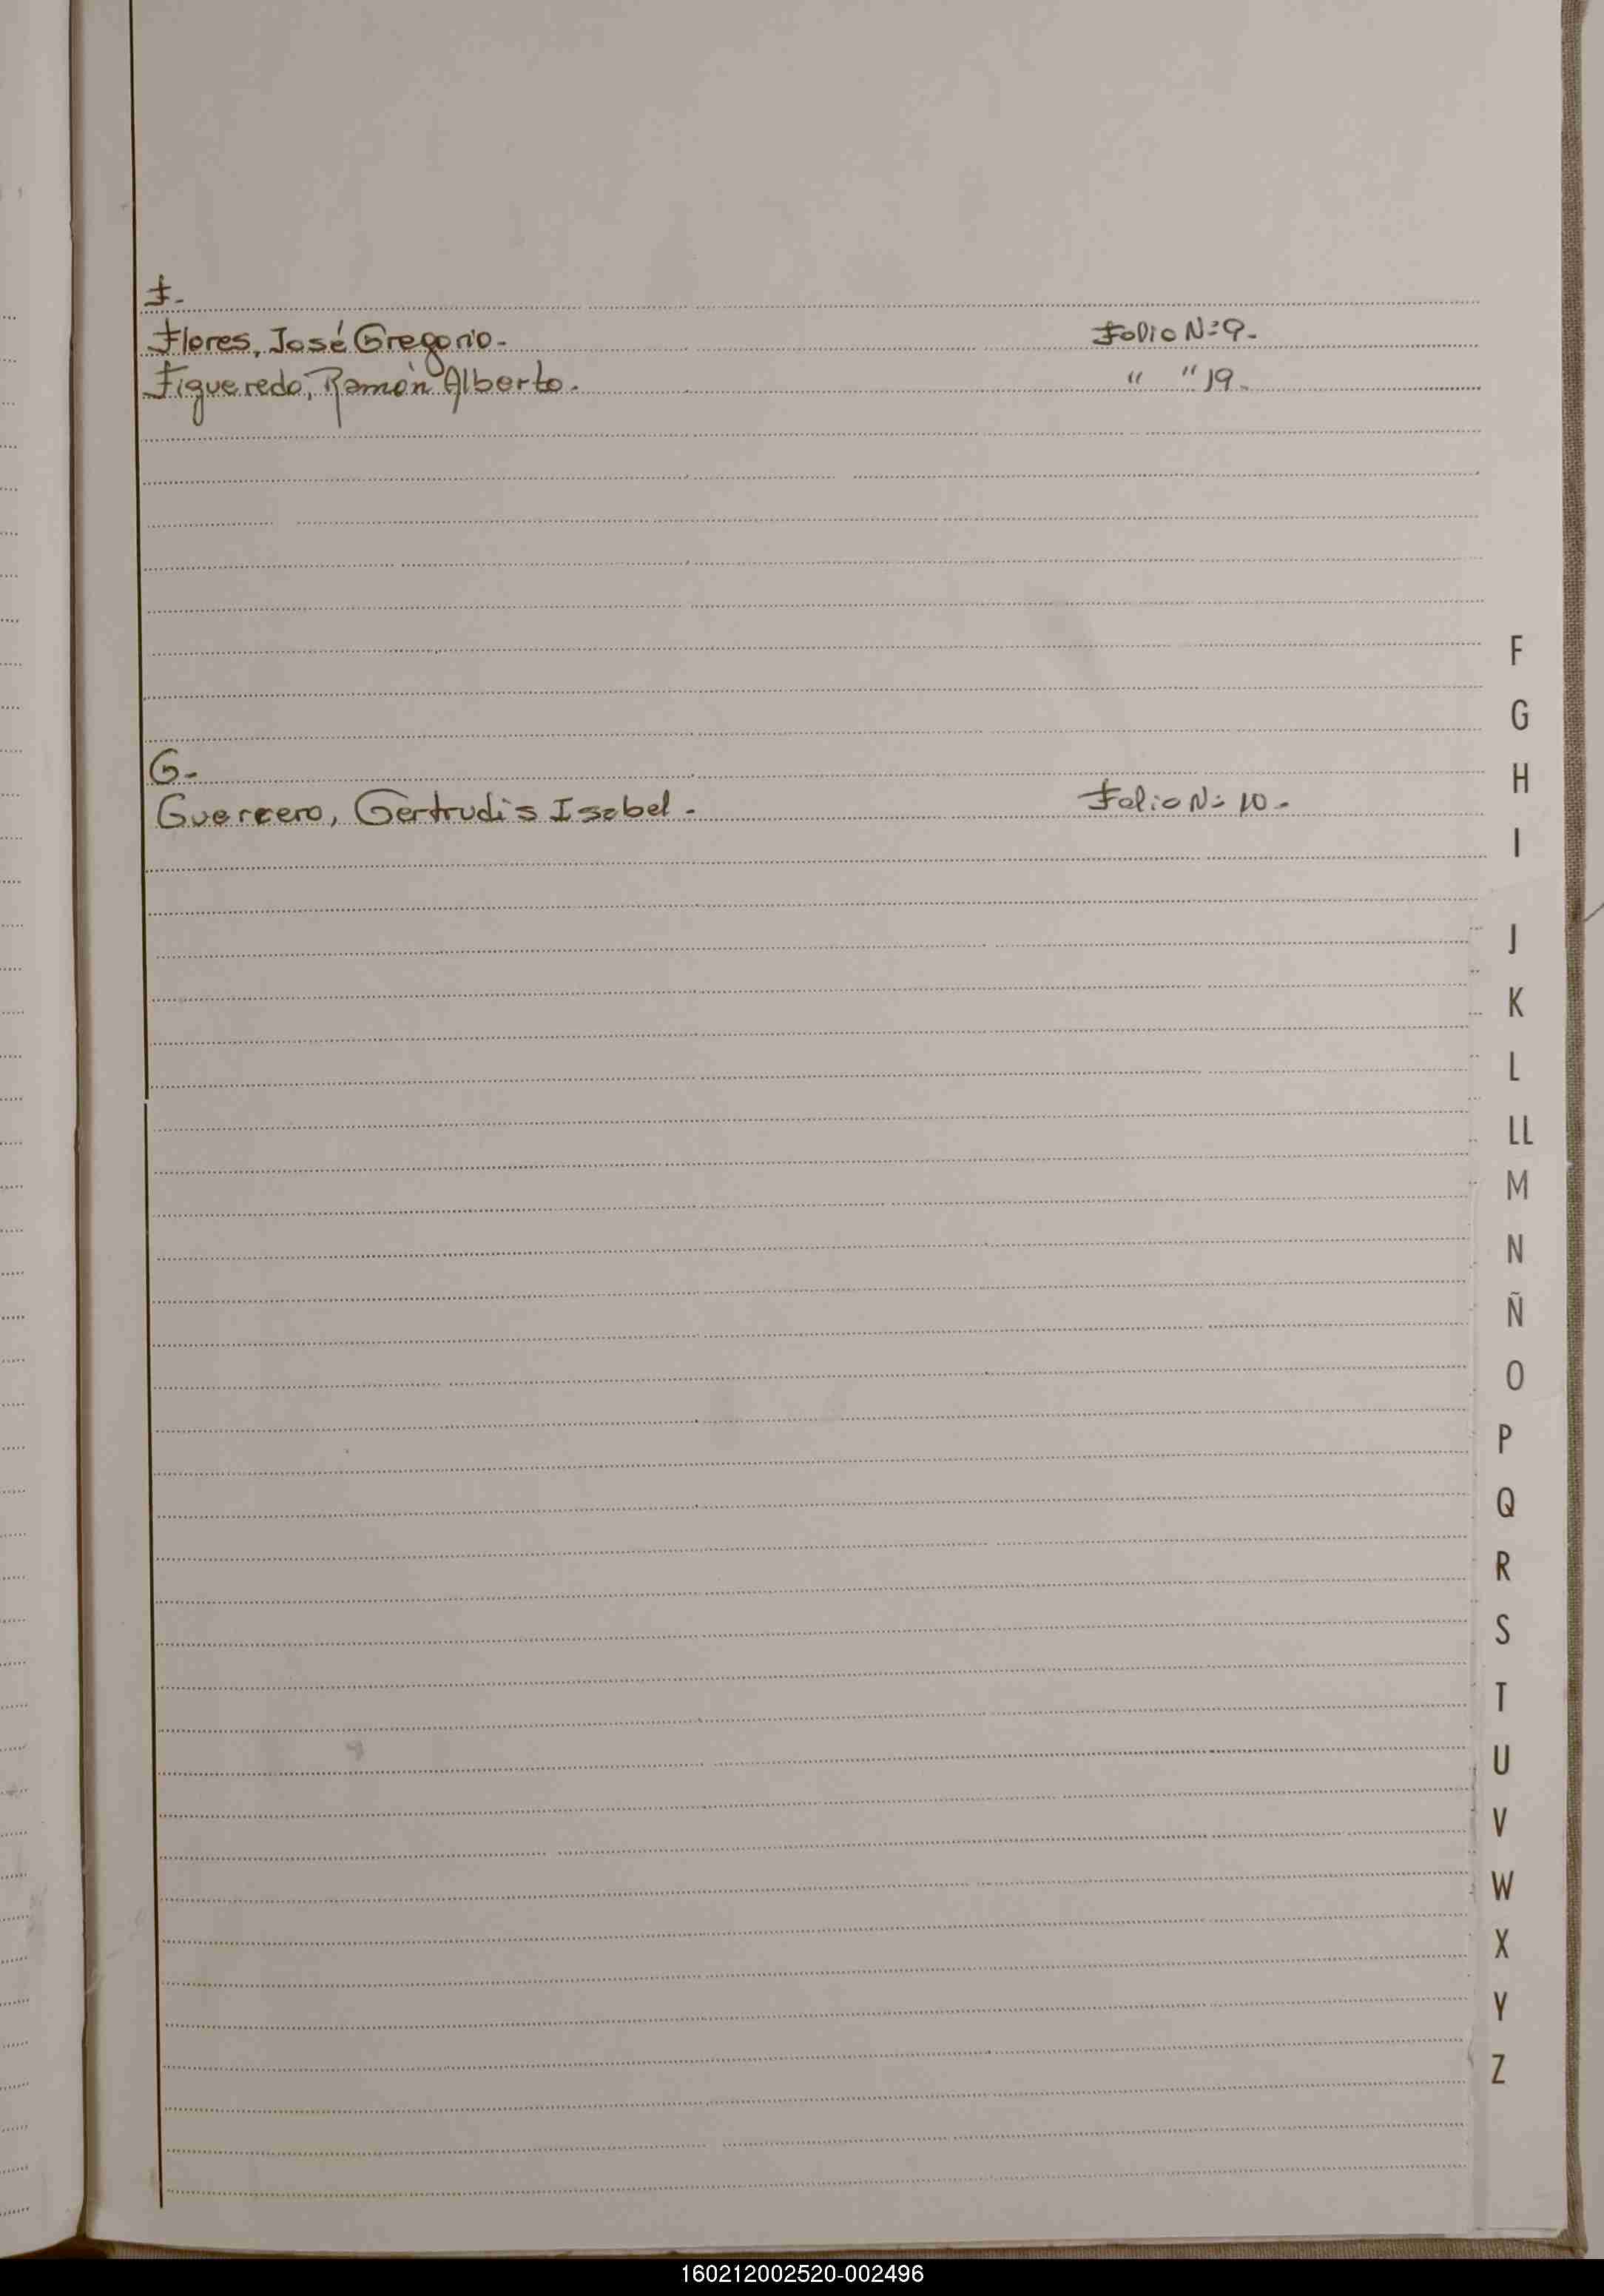 F.
Flores, José Gregorio. Folio Nº 9.
Figueredo, Ramón Alberto. " " 19.
G.
Guerrero, Gertrudis Isabel. Folio Nº 10.
F
G
H
I
J
K
L
LL
M
N
Ñ
O
P
Q
R
S
T
U
V
W
X
Y
Z
160212002520-002496